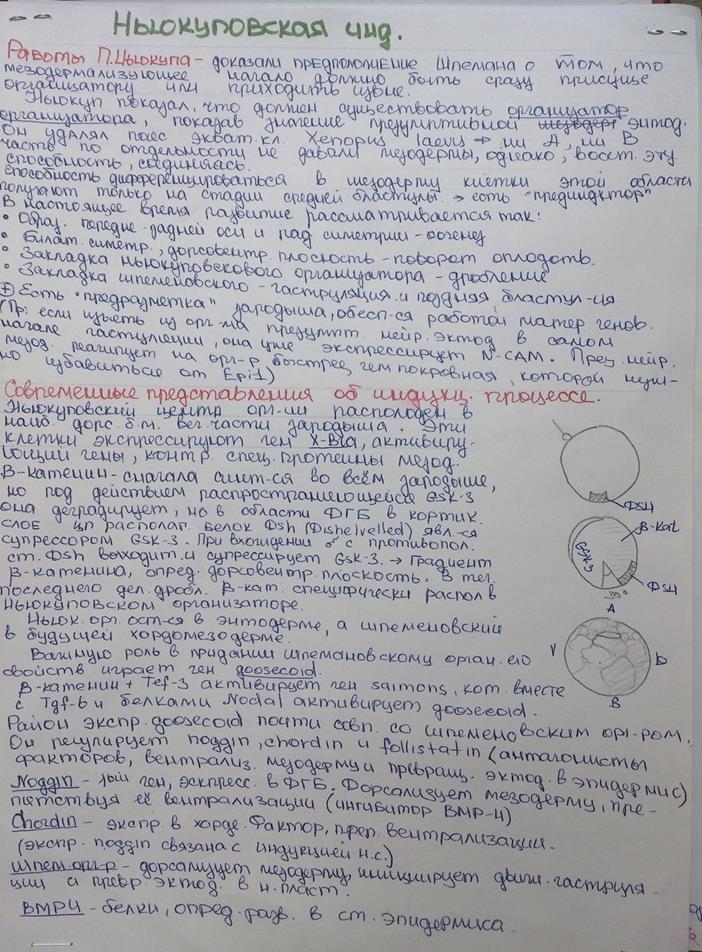 Ньюкуповская инд.
Работы П.Ньюкупа - доказали предположение Шпемана о том, что
мезодермализующее начало должно быть сразу присуще
организатору или приходить извне.
Ньюкуп показал, что должен существовать организатор
организатора, показав значение презумптивной энтод.
Он удалял пояс экват. кл. Xenopus laevis → ни А, ни В
части по отдельности не давали мезодермы, однако, восст. эту
способность, соединяясь.
Способность дифференцироваться в мезодерму клетки этой области
получают только на стадии средней бластулы. → есть "прединдуктор"
В настоящее время развитие рассматривается так:
• Образ. передне-задней оси и рад симметрии - оогенез
• Билат. симметр., дорсовентр. плоскость - поворот оплодотв.
• Закладка ньюкуповского организатора - дробление
• Закладка шпемановского - гаструляция и поздняя бластул-ця
Есть "предразметка" зародыша, обесп-ся работой матер. генов.
(Пр: если изъять из орг-ма презумпт. нейр. эктод в самом
начале гаструляции, она уже экспрессирует N-CAM. През. нейр.
мезод. реагирует на орг-р быстрее, чем покровная, которой нуж-
но избавиться от Epi1)
Современные представления об индукц. процессе.
Ньюкуповский центр орг-ии расположен в
наиб. дорс. б.м. вег. части зародыша. Эти
клетки экспрессируют ген X-Bra, активиру-
ющий гены, контр. спец. протеины мезод.
β-катенин - сначала синт-ся во всём зародыше,
но под действием распространяющейся GSK-3
она деградирует, но в области ФГБ в кортик.
слое цп располаг. белок Dsh (Dishelvelled) явл-ся
супрессором GSK-3. При вхождении ♂ с противопол.
ст. Dsh выходит и супрессирует GSK-3. → Градиент
β-катенина, опред. дорсовентр. плоскость. В теч.
последнего дел. дробл. β-кат. специфически распол в
Ньюкуповском организаторе.
Ньюк. орг. ост-ся в энтодерме, а шпемановский
в будущей хордомезодерме.
Важную роль в придании шпемановскому орган. его
свойств играет ген goosecoid.
β-катенин + Tcf-3 активирует ген saimons, кот. вместе
с Tgf-b и белками Nodal активирует goosecoid.
Район экспр. goosecoid почти совп. со шпемановским орг-ром.
Он регулирует noggin, chordin и follistatin (антагонисты
факторов, вентрализ. мезодерму и превращ. эктод. в эпидермис)
Noggin - ген, экспресс. в ФГБ. Дорсализует мезодерму, пре-
пятствуя её вентрализации (ингибитор BMP-4)
Chordin - экспр. в хорде. Фактор, преп. вентрализации.
(экспр. noggin связана с индукцией н.с.)
Шпем. орг-р - дорсализует мезодерму, инициирует движ. гаструля-
ции и превр. эктод. в н. пласт.
BMP4 - белки, опред. разв. в ст. эпидермиса.
DSH
β-kat
GSK3
DSH
~30°
A
V
D
B